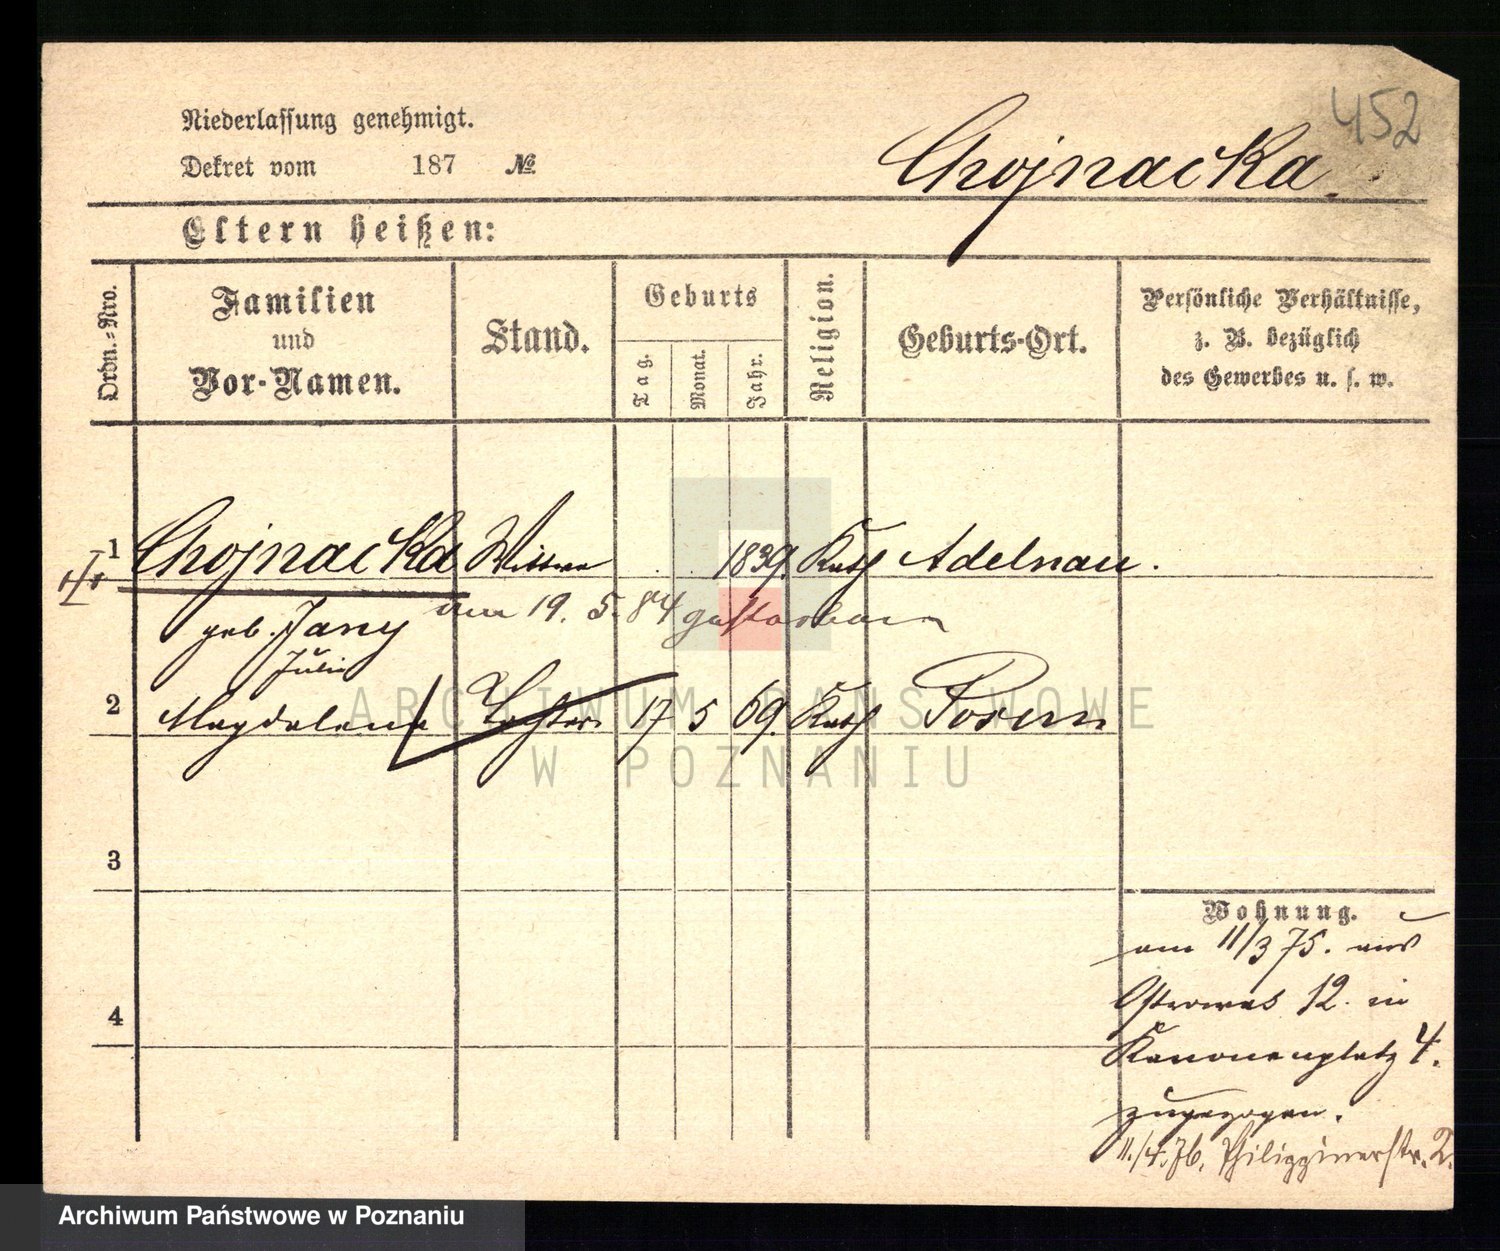 452
Niederlassung genehmigt.
Dekret vom 187 №
Chojnacka.
Eltern heißen:
Ordn.=Nro.
Familien und Vor-Namen.
Stand.
Geburts
Tag.
Monat.
Jahr.
Religion.
Geburts-Ort.
Persönliche Verhältnisse, z. B. bezüglich des Gewerbes u. s. w.
1 Chojnacka Wittwe 1839. Kath Adelnau.
geb. Jany am 19. 5. 84 gestorben
Julie
2 Magdalena Tochter 17 5 69. Kath Posen
3
4
Wohnung.
am 11/3 75. aus
Ostrowek 12. in
Kanonenplatz 4.
zugezogen.
11./4. 76. Philippinerstr. 2.
ARCHIWUM PAŃSTWOWE
W POZNANIU
Archiwum Państwowe w Poznaniu